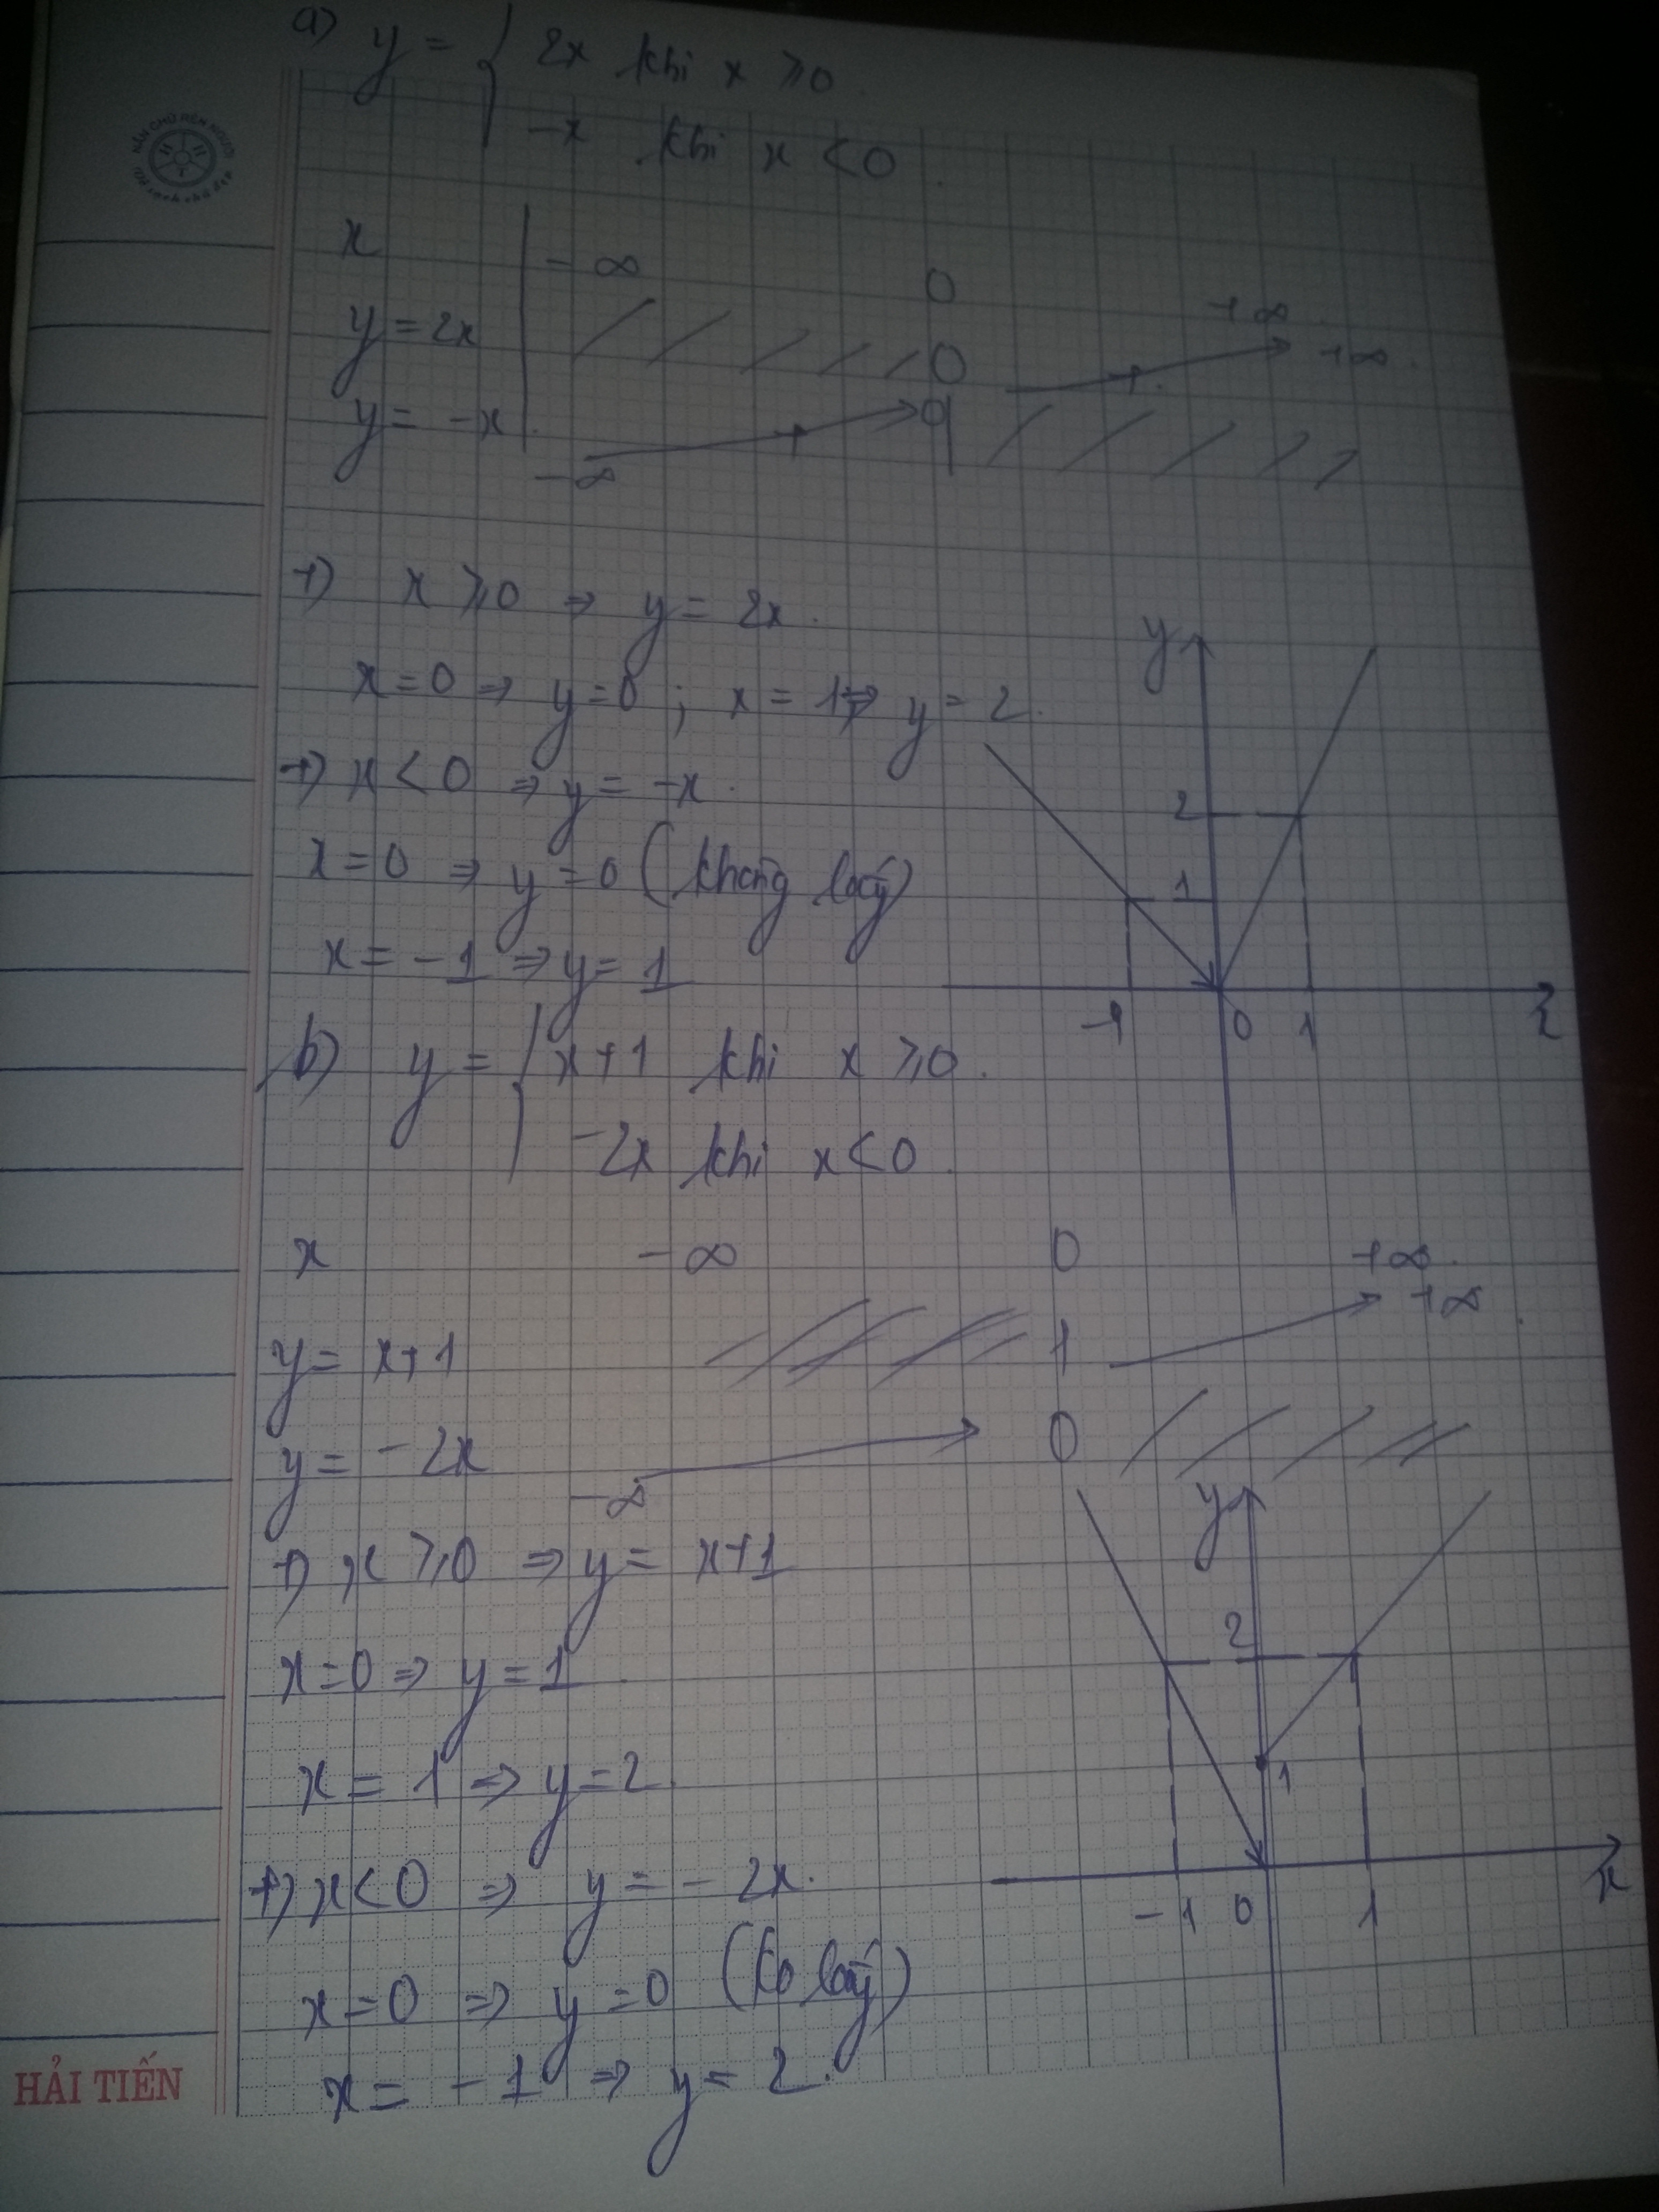 a) y = { 2x khi x ⩾ 0
-x khi x < 0
x -∞ 0 +∞
y = 2x 0 +∞
y = -x -∞ 0
+) x ⩾ 0 ⇒ y = 2x.
x = 0 ⇒ y = 0 ; x = 1 ⇒ y = 2.
+) x < 0 ⇒ y = -x.
x = 0 ⇒ y = 0 (không lấy)
x = -1 ⇒ y = 1
y
2
1
-1 0 1
b) y = { x+1 khi x ⩾ 0.
-2x khi x < 0.
x -∞ 0 +∞.
y = x+1 1 +∞
y = -2x -∞ 0
+) x ⩾ 0 ⇒ y = x+1
x = 0 ⇒ y = 1
x = 1 ⇒ y = 2
+) x < 0 ⇒ y = -2x.
x = 0 ⇒ y = 0 (ko lấy)
x = -1 ⇒ y = 2.
y
2
1
x
-1 0 1
HẢI TIẾN